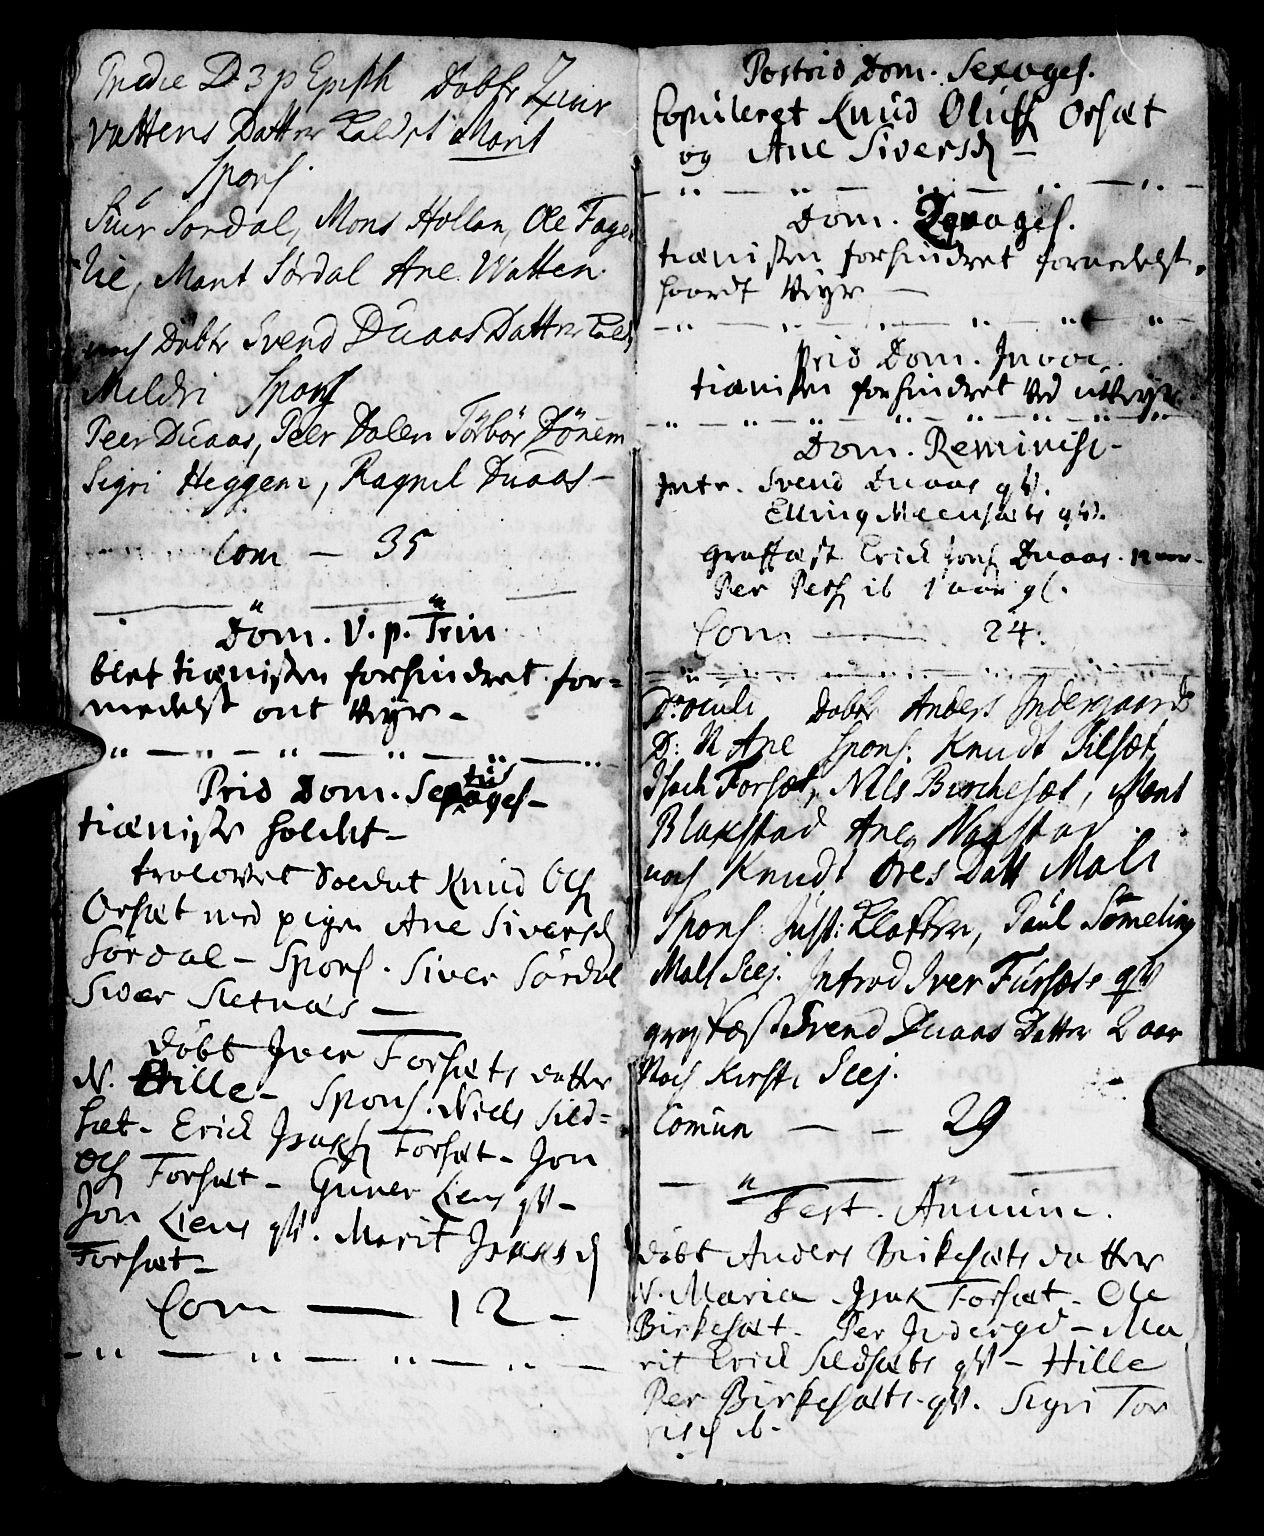 Tredie D 3 p Epiph Dobt Siur
Vattens Datter kaldet Marit
Spons.
Siur Sørdal, Mons Hollan, Ole Fager
lie, Marit Sørdal Ane Watten.
noch Dobte Svend Duaas Datter kald
Mildri Spons
Peer Duaas, Peer Dalen Törbör Dönem
Sigri Heggem, Ragnil Duaas -
Com - 35
Dom. V. p. Trin
blef tiænisten forhindret for=
medelst ont Veyr -
Prid Dom. Septuages -
tiæniste holdet -
trolovet Soldat Knud Ols
Orsæt med pigen Ane Siversd
Sørdal - Spons. Siver Sørdal
Siver Sletnæs -
døbt Iver Forsæts datter
N. Hille - Spons. Niels Sild=
sæt - Erick Isaks Forsæt - Jon
Ols Forsæt - Guner Liens qv -
Jon Liens qv. Marit Isaksd
Forsæt -
Com - 12 -
Postrid Dom. Sexages.
Copuleret Knud Oluss Orsæt
og Ane Siversd -
Dom. Qvages.
tiænisten forhindret formedelst
haardt Veyr -
Prid Dom. Invoc.
tiænisten forhindret ved uveyr
Dom. Reminisc -
Intr. Svend Duaas qv.
Elling Meensæts qv.
graffæst Erick Jons Duaas
Per Pers ib 1 aar gl.
Com - 24.
D: oculi Dobt Anders Indergaards
D: N Ane Spons: Knudt Silsæt,
Isach Forsæt, Nils Birchesæt, Marit
Blakstad Ane Nagstad
noch Knudt Ores Datt Mali
Spons Just: Klokker, Paul Sømeling
Mali Seej. Introd Iver Fursæts qv
gray fæst Svend Duaas Datter 2 aar
Noch Kirsti Seej.
Comun - - 29
Fest. Anunc.
døbt Anders Birkesæts datter
N. Maria - Isak Forsæt - Ole
Birkesæt - Per Indergd - Ma
rit Erick Sildsæts qv - Hille
Per Birkesæts qv. Sigri Tor
risd ib -